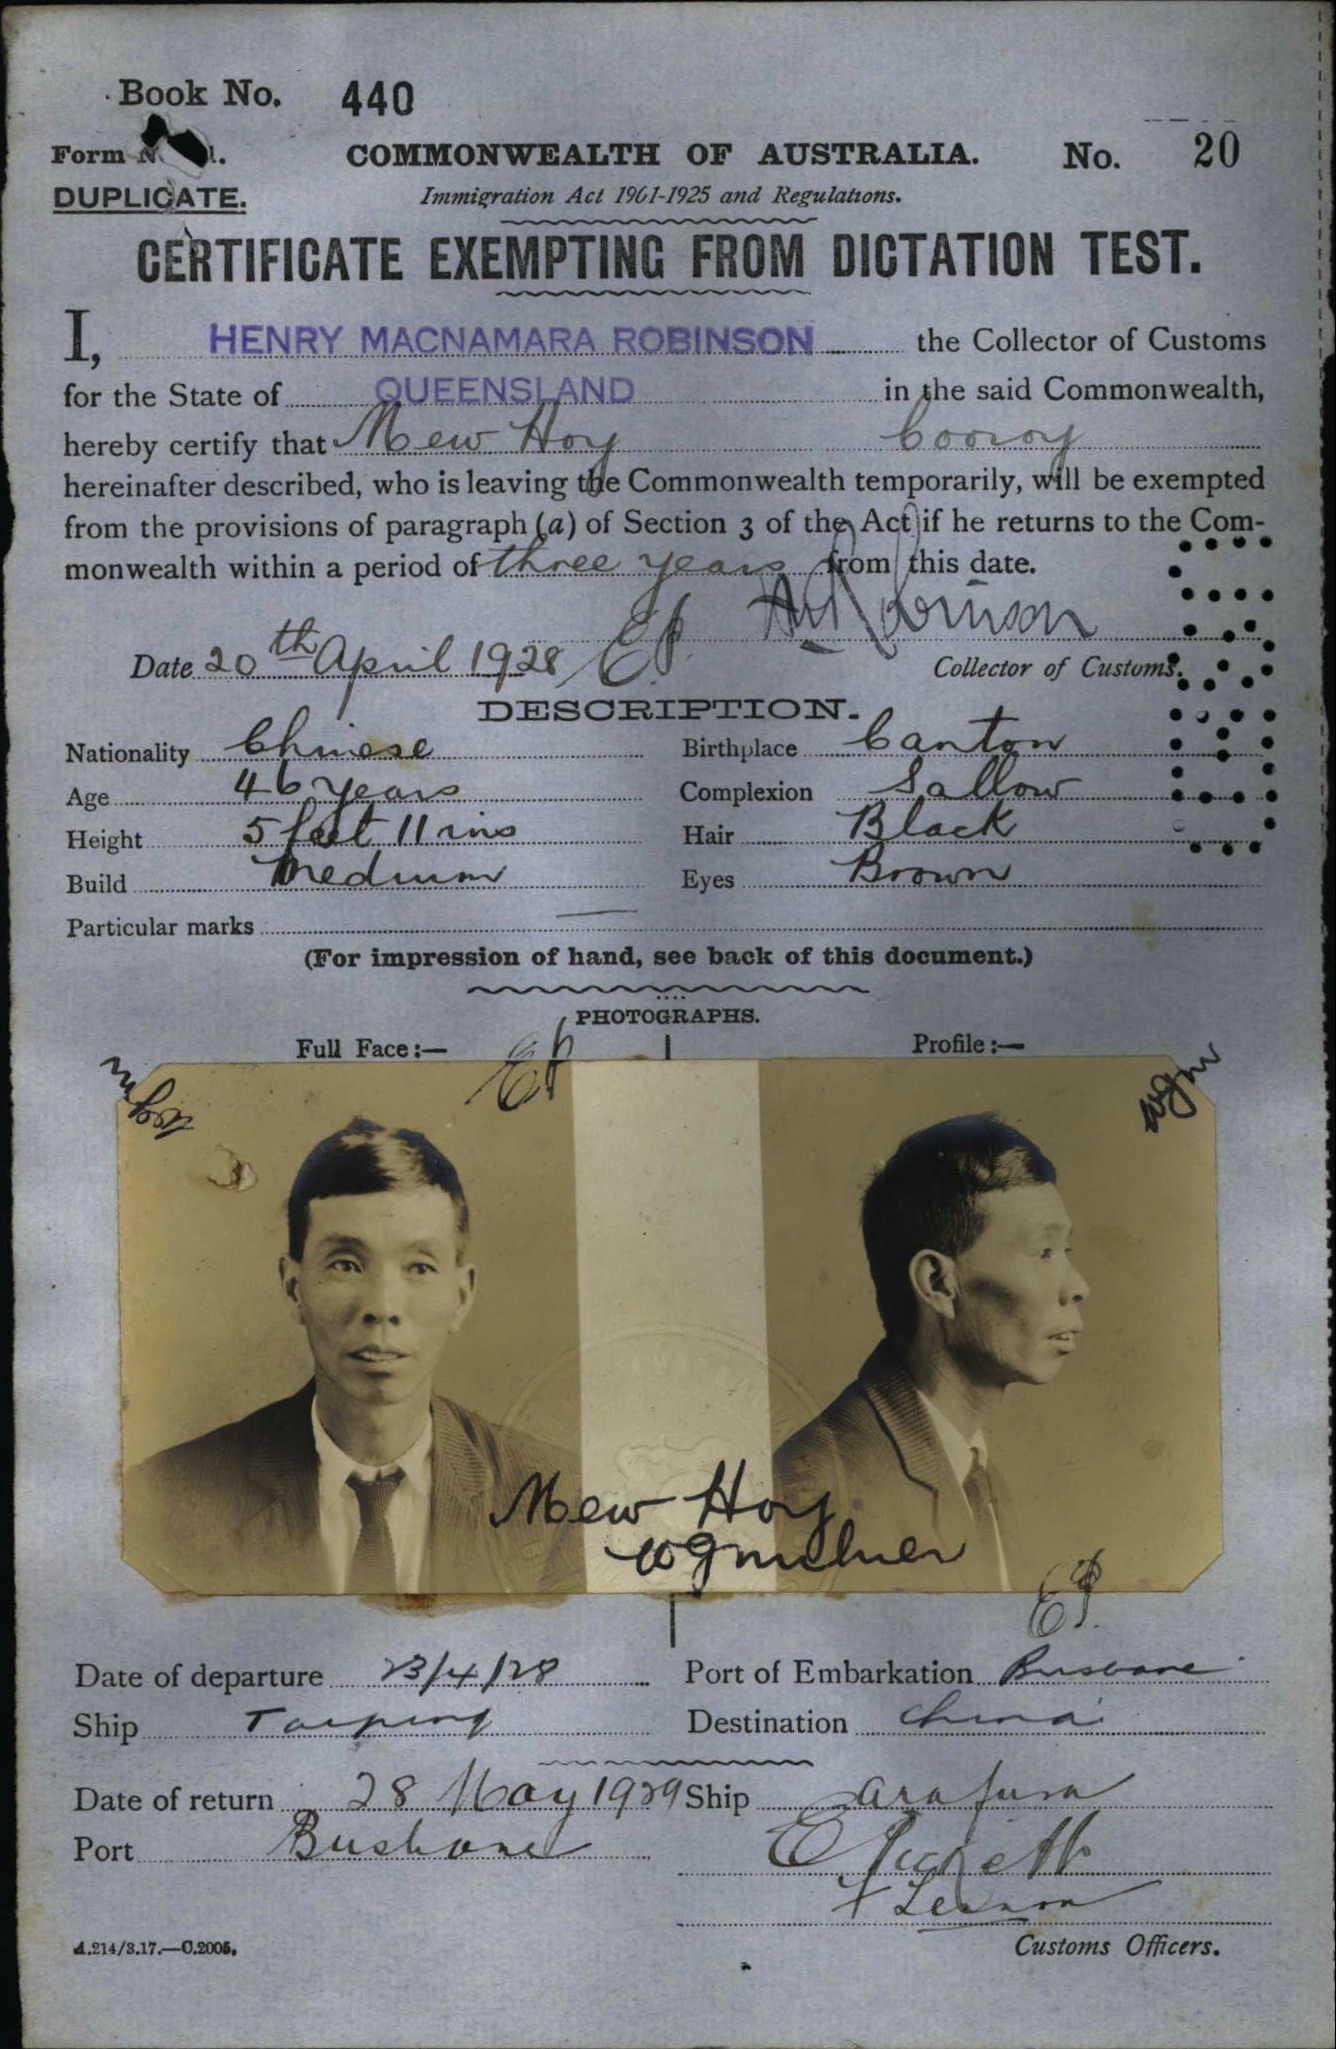 Book No. 440
Form
COMMONWEALTH OF AUSTRALIA. No. 20
DUPLICATE.
Immigration Act 1901-1925 and Regulations.
CERTIFICATE EXEMPTING FROM DICTATION TEST.
I, HENRY MACNAMARA ROBINSON the Collector of Customs
for the State of QUEENSLAND in the said Commonwealth,
hereby certify that Mew Hoy Cooroy
hereinafter described, who is leaving the Commonwealth temporarily, will be exempted
from the provisions of paragraph (a) of Section 3 of the Act if he returns to the Com-
monwealth within a period of three years from this date.
HM Robinson
Date 20th April 1928 EP. Collector of Customs.
DESCRIPTION.
Nationality Chinese Birthplace Canton
Age 46 years Complexion Sallow
Height 5 feet 11 ins Hair Black
Build Medium Eyes Brown
Particular marks —
(For impression of hand, see back of this document.)
PHOTOGRAPHS.
Full Face:— Profile:—
EP
wgm
Mew Hoy
W G Milner
EP.
Date of departure 23/4/28 Port of Embarkation Brisbane
Ship Taiping Destination China
Date of return 28 May 1929 Ship Arafura
Port Brisbane
F Lennon
A.214/3.17.—C.2005. Customs Officers.